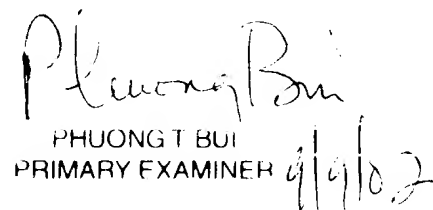 Phuong Bui
PHUONG T BUI
PRIMARY EXAMINER 9/9/02